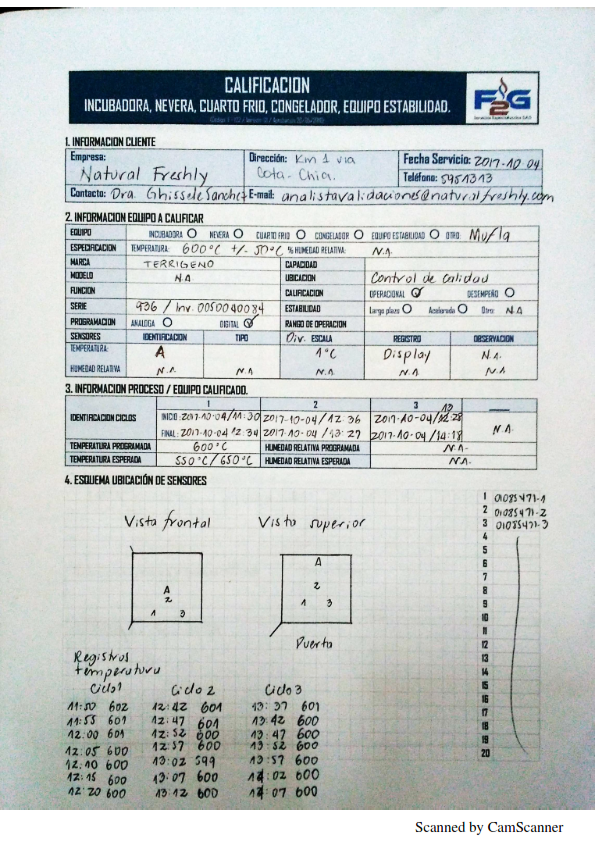 CALIFICACION
INCUBADORA, NEVERA, CUARTO FRIO, CONGELADOR, EQUIPO ESTABILIDAD.
F2G
1. INFORMACION CLIENTE
Empresa: Natural Freshly Dirección: Km 1 via Cota-Chia. Fecha Servicio: 2017-10-04
Teléfono: 5951313
Contacto: Dra. Ghissele Sanchez E-mail: analistavalidaciones@naturalfreshly.com
2. INFORMACION EQUIPO A CALIFICAR
EQUIPO INCUBADORA NEVERA CUARTO FRIO CONGELADOR EQUIPO ESTABILIDAD OTRO Mufla
ESPECIFICACION TEMPERATURA: 600°C +/- 50°C % HUMEDAD RELATIVA: N.A.
MARCA TERRIGENO CAPACIDAD
MODELO NA UBICACION Control de calidad
FUNCION CALIFICACION OPERACIONAL DESEMPEÑO
SERIE 936 / Inv. 0050040084 ESTABILIDAD Largo plazo Acelerada Otro N.A
PROGRAMACION ANALOGA DIGITAL RANGO DE OPERACION
SENSORES IDENTIFICACION TIPO Div. ESCALA REGISTRO OBSERVACION
TEMPERATURA: A 1°C Display N.A.
HUMEDAD RELATIVA N.A. N.A. N.A N.A N.A
3. INFORMACION PROCESO / EQUIPO CALIFICADO.
1 2 3
IDENTIFICACION CICLOS INICIO: 2017-10-04/11:30 2017-10-04/12:36 2017-10-04/13:28 N.A.
FINAL: 2017-10-04 12:34 2017-10-04 /13:27 2017-10-04 /14:18
TEMPERATURA PROGRAMADA 600°C HUMEDAD RELATIVA PROGRAMADA N.A.
TEMPERATURA ESPERADA 550°C/650°C HUMEDAD RELATIVA ESPERADA N.A.
4. ESQUEMA UBICACIÓN DE SENSORES
1 01085471-1
2 01085471-2
3 01085471-3
4
5
6
7
8
9
10
11
12
13
14
15
16
17
18
19
20
Vista frontal Vista superior
A
2
1 3
A
2
1 3
Puerta
Registros
temperatura
Ciclo 1 Ciclo 2 Ciclo 3
11:50 602 12:42 601 13:37 601
11:55 601 12:47 601 13:42 600
12:00 601 12:52 600 13:47 600
12:05 600 12:57 600 13:52 600
12:10 600 13:02 599 13:57 600
12:15 600 13:07 600 14:02 600
12:20 600 13:12 600 14:07 600
Scanned by CamScanner